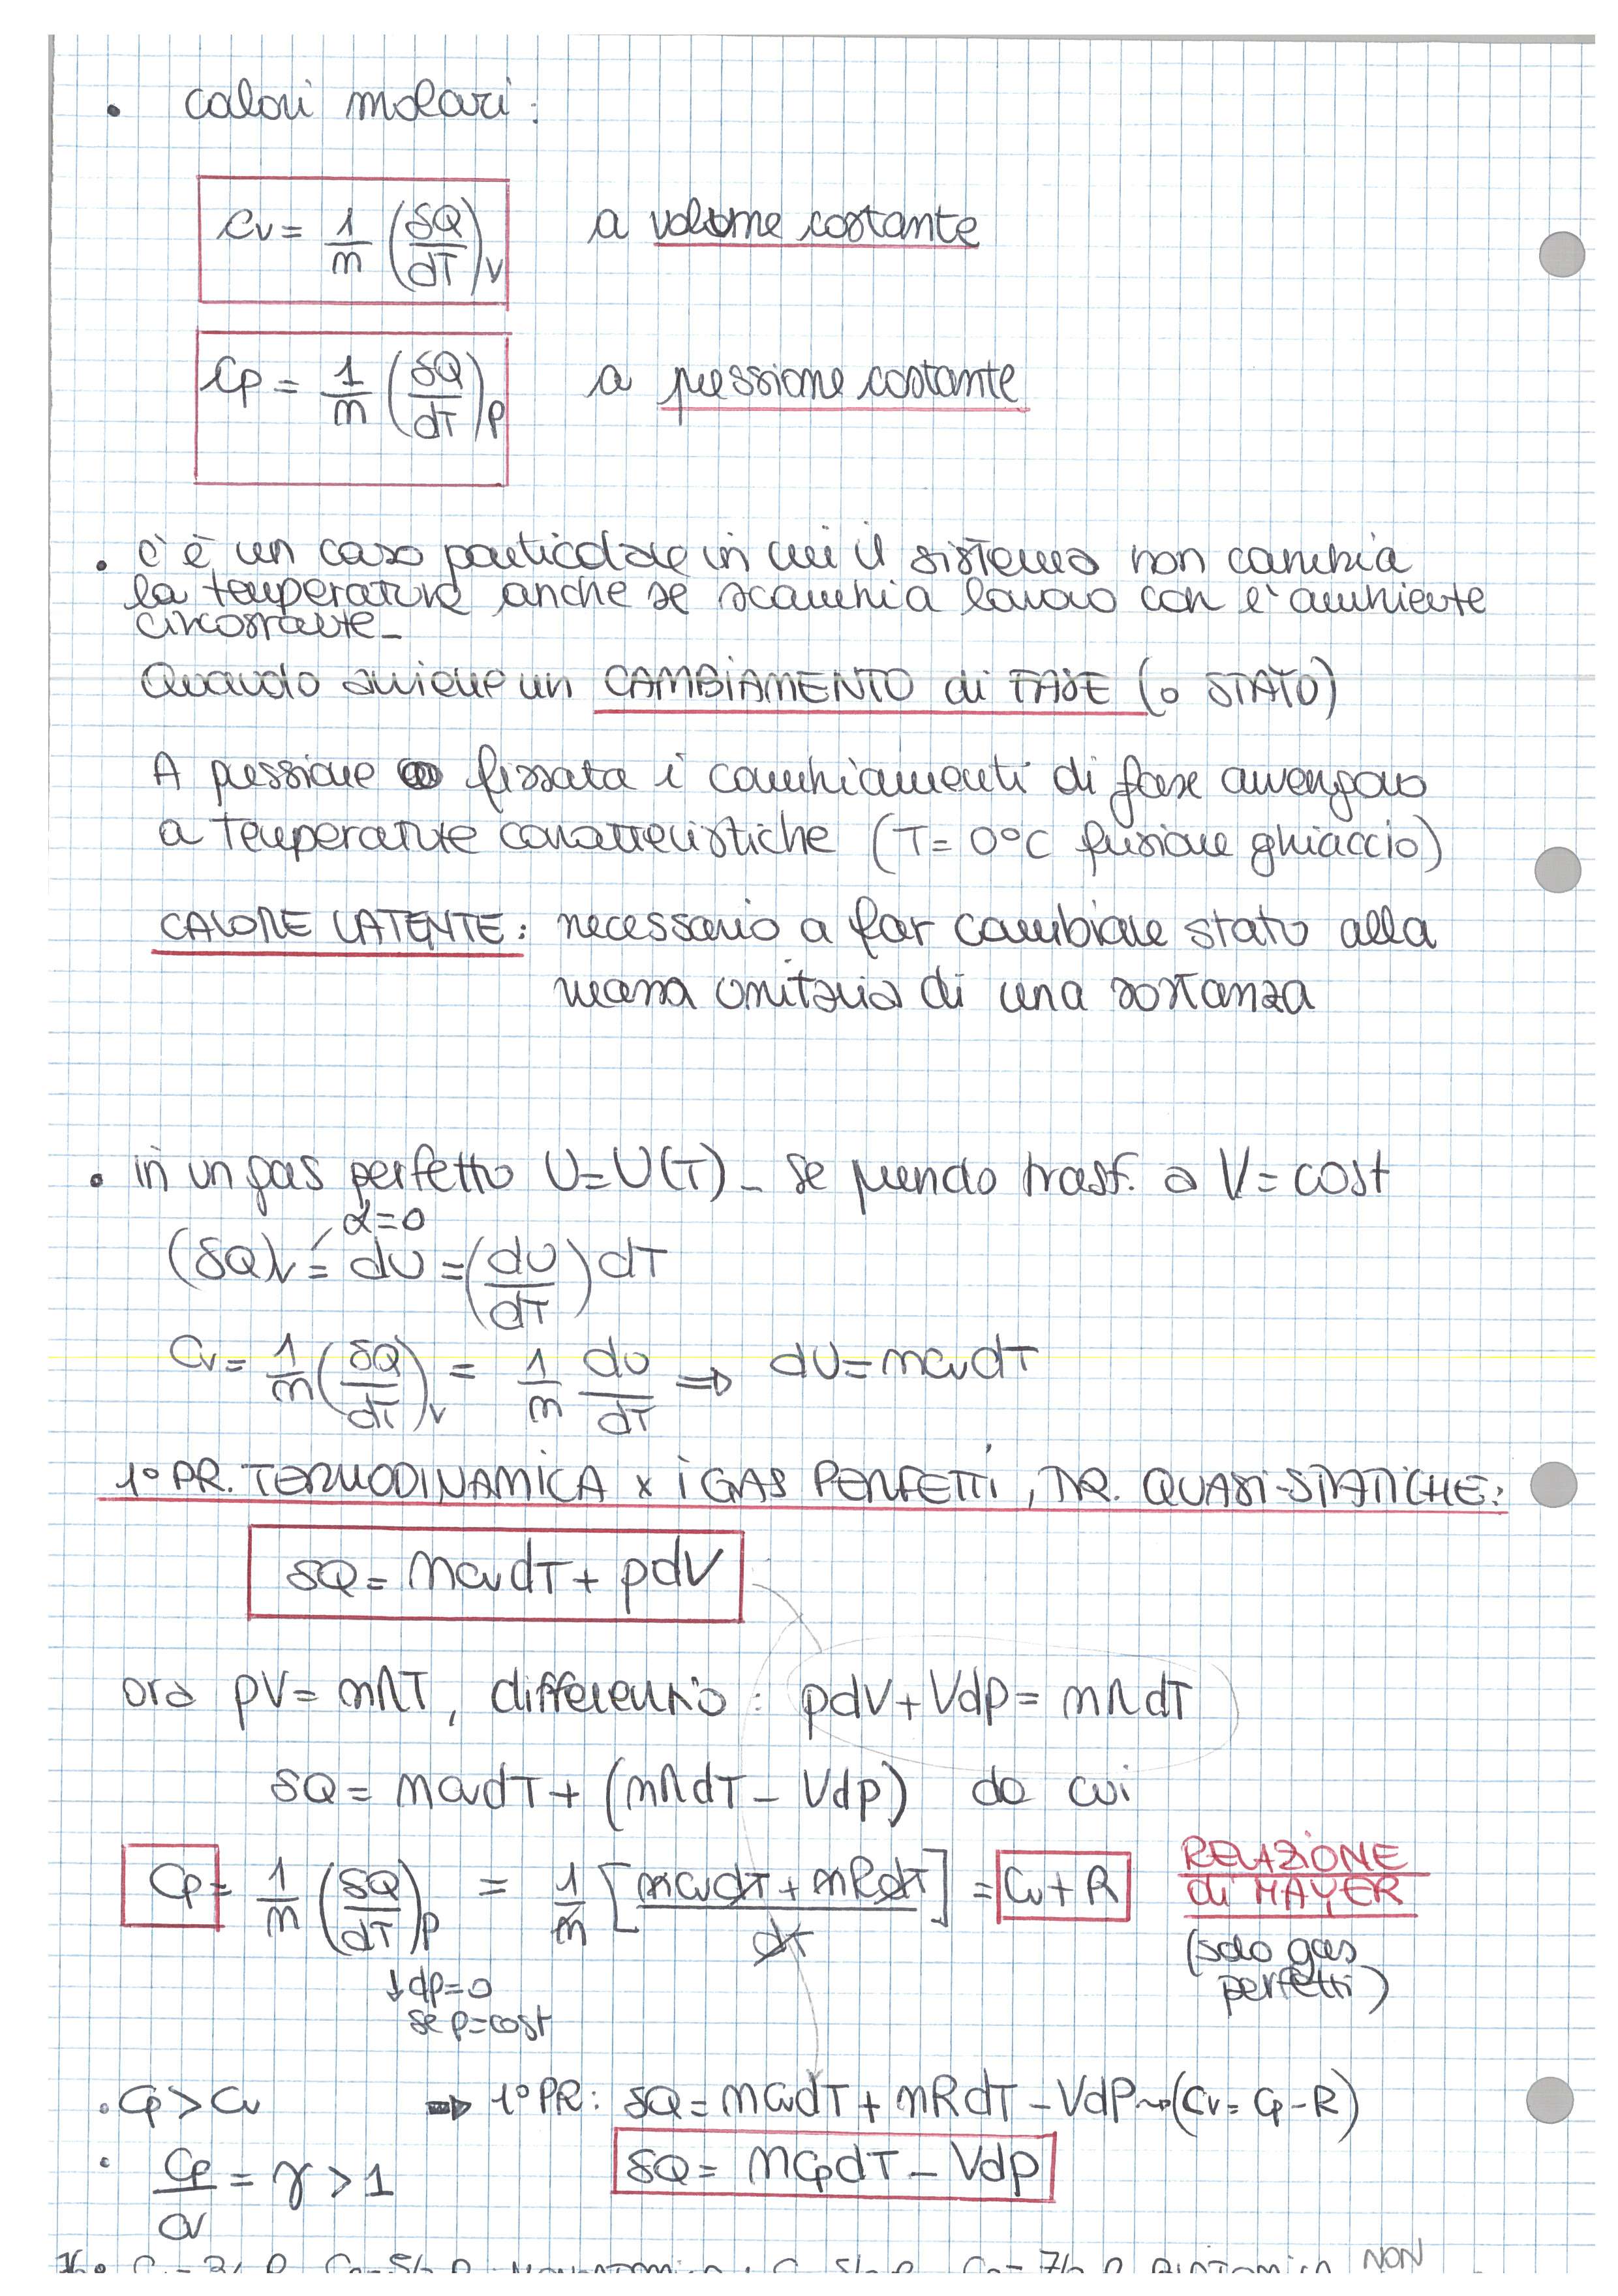 • calori molari:
Cv = 1/n (δQ/dT)v a volume costante
Cp = 1/n (δQ/dT)p a pressione costante
• c'è un caso particolare in cui il sistema non cambia
la temperatura anche se scambia lavoro con l'ambiente
circostante_
Quando avviene un CAMBIAMENTO di FASE (o STATO)
A pressione fissata i cambiamenti di fase avvengono
a temperature caratteristiche (T = 0°C fusione ghiaccio)
CALORE LATENTE: necessario a far cambiare stato alla
massa unitaria di una sostanza
• in un gas perfetto U=U(T) _ se prendo trasf. a V = cost
α=0
(δQ)v = dU = (dU/dT) dT
Cv = 1/n (δQ/dT)v = 1/n dU/dT ⇒ dU = ncvdT
1° PR. TERMODINAMICA x i GAS PERFETTI, TR. QUASI-STATICHE:
δQ = ncvdT + pdV
ora pV = nRT, differenzio: pdV + Vdp = nRdT
δQ = ncvdT + (nRdT - Vdp) da cui
Cp = 1/n (δQ/dT)p = 1/n [ncvdT + nRdT / dT] = Cv + R RELAZIONE
di MAYER
(solo gas
perfetti)
↓ dp=0
se p=cost
• Cp > Cv ⇒ 1° PR: δQ = ncvdT + nRdT - Vdp → (Cv = Cp - R)
• Cp/Cv = γ > 1 δQ = nCpdT - Vdp
NON